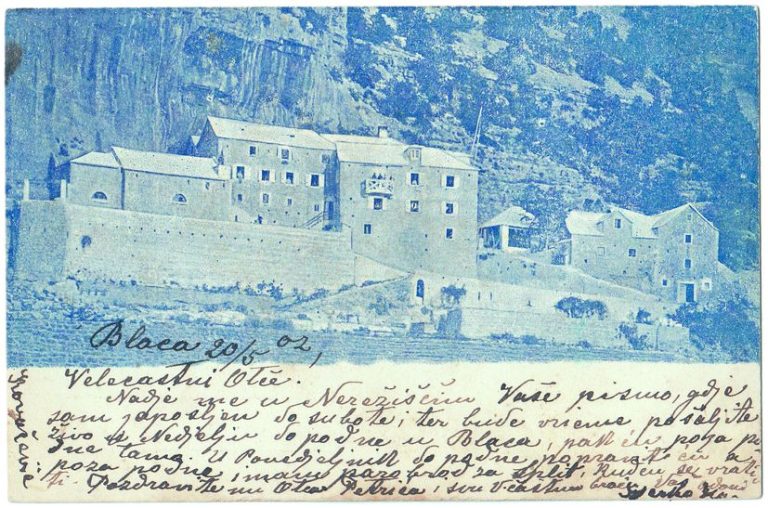 Blaca 20/5 02,
Velecastni Otče.
Nadje me u Nerežišćim Vaše pismo, gdje
sam zaposljen do subote; ter bude vrieme pošaljite
živo u Nedjelju do podne u Blaca, pak ću poza po
dne tamo. U Ponedjeljnik do podne popravit ću a
poza podne, imam parobrod za Split, Ruđu se vrati
ti. Pozdravite mi Otca Petrića, i svu Včastnu braću